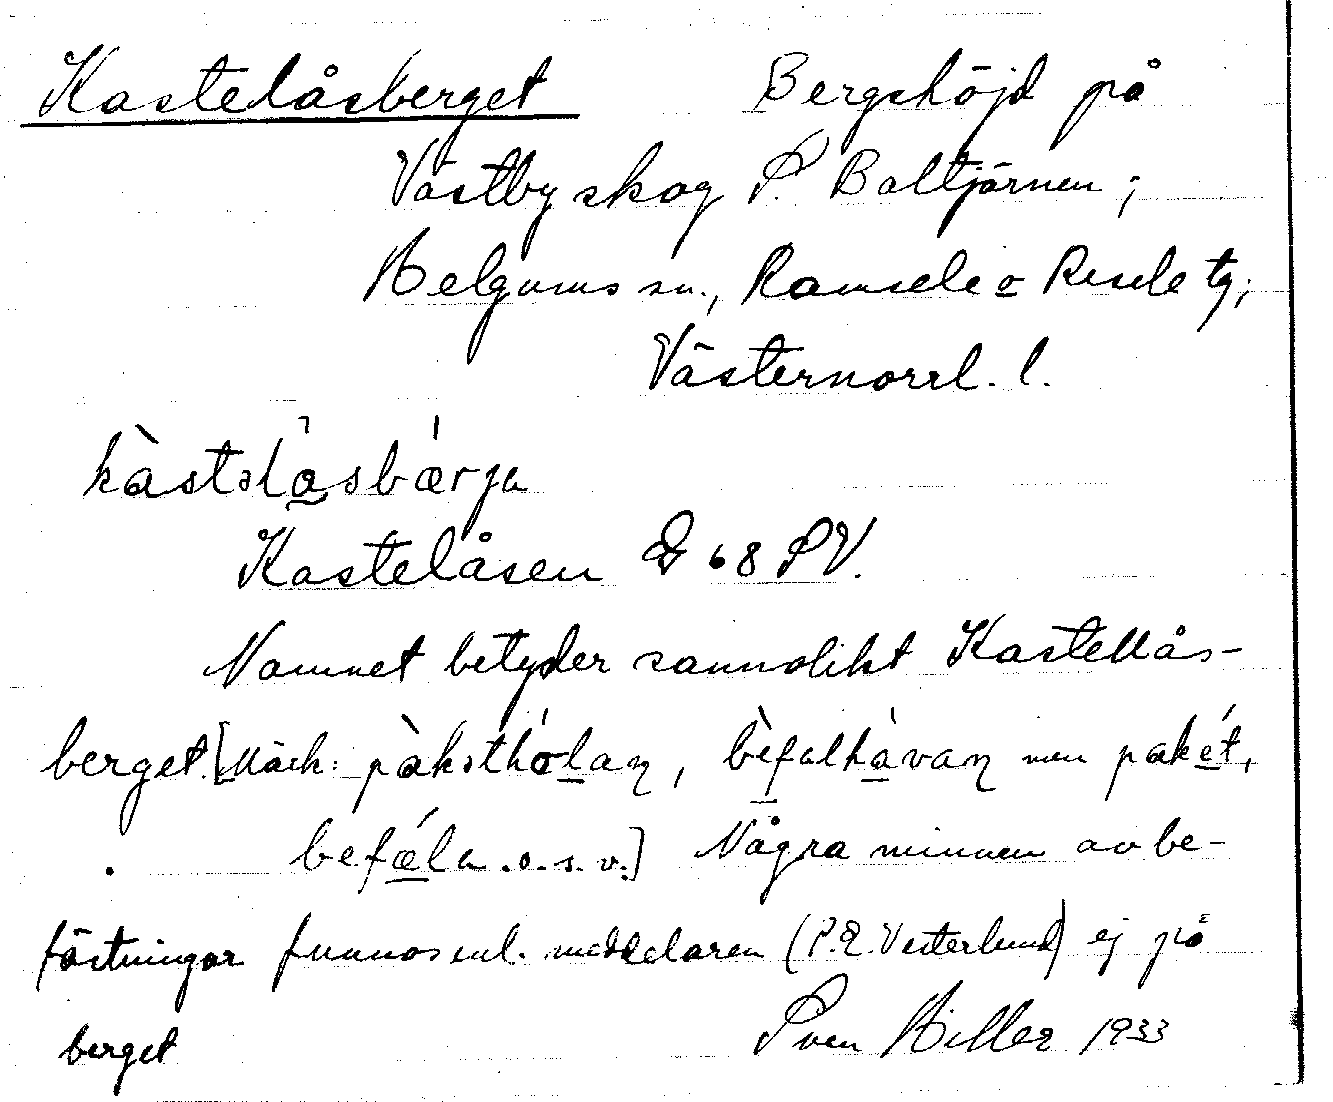 Kastelåsberget Bergshöjd på
Västby skog S. Baltjärnen;
Helgums sn., Ramsele o Resele tg;
Västernorrl. l.
kàstəlåsbǽrja
Kastelåsen G 68 SV.
Namnet betyder sannolikt Kastellås-
berget. [Märk: pàkəthólaɳ, bèfalhàvaɳ men pakét,
befǽla o.s.v.] Några minnen av be-
fästningar funnos enl. meddelaren (P.E. Vesterlund) ej på
berget Sven Hiller 1933